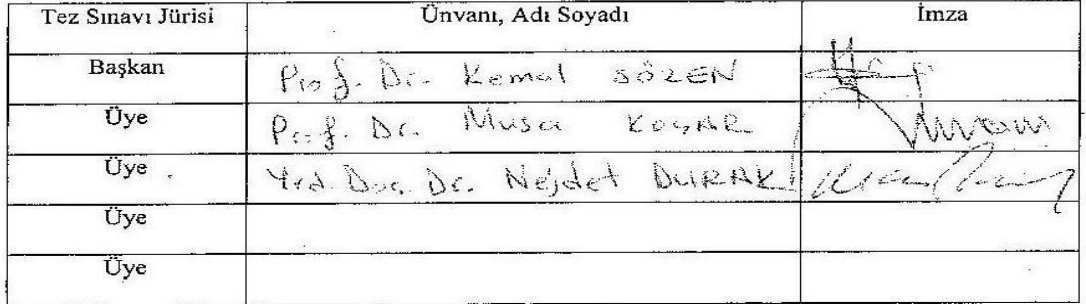 Tez Sınavı Jürisi Ünvanı, Adı Soyadı İmza
Başkan Prof. Dr. Kemal SÖZEN
Üye Prof. Dr. Musa KOÇAR
Üye Yrd. Doç. Dr. Nejdet DURAK
Üye
Üye